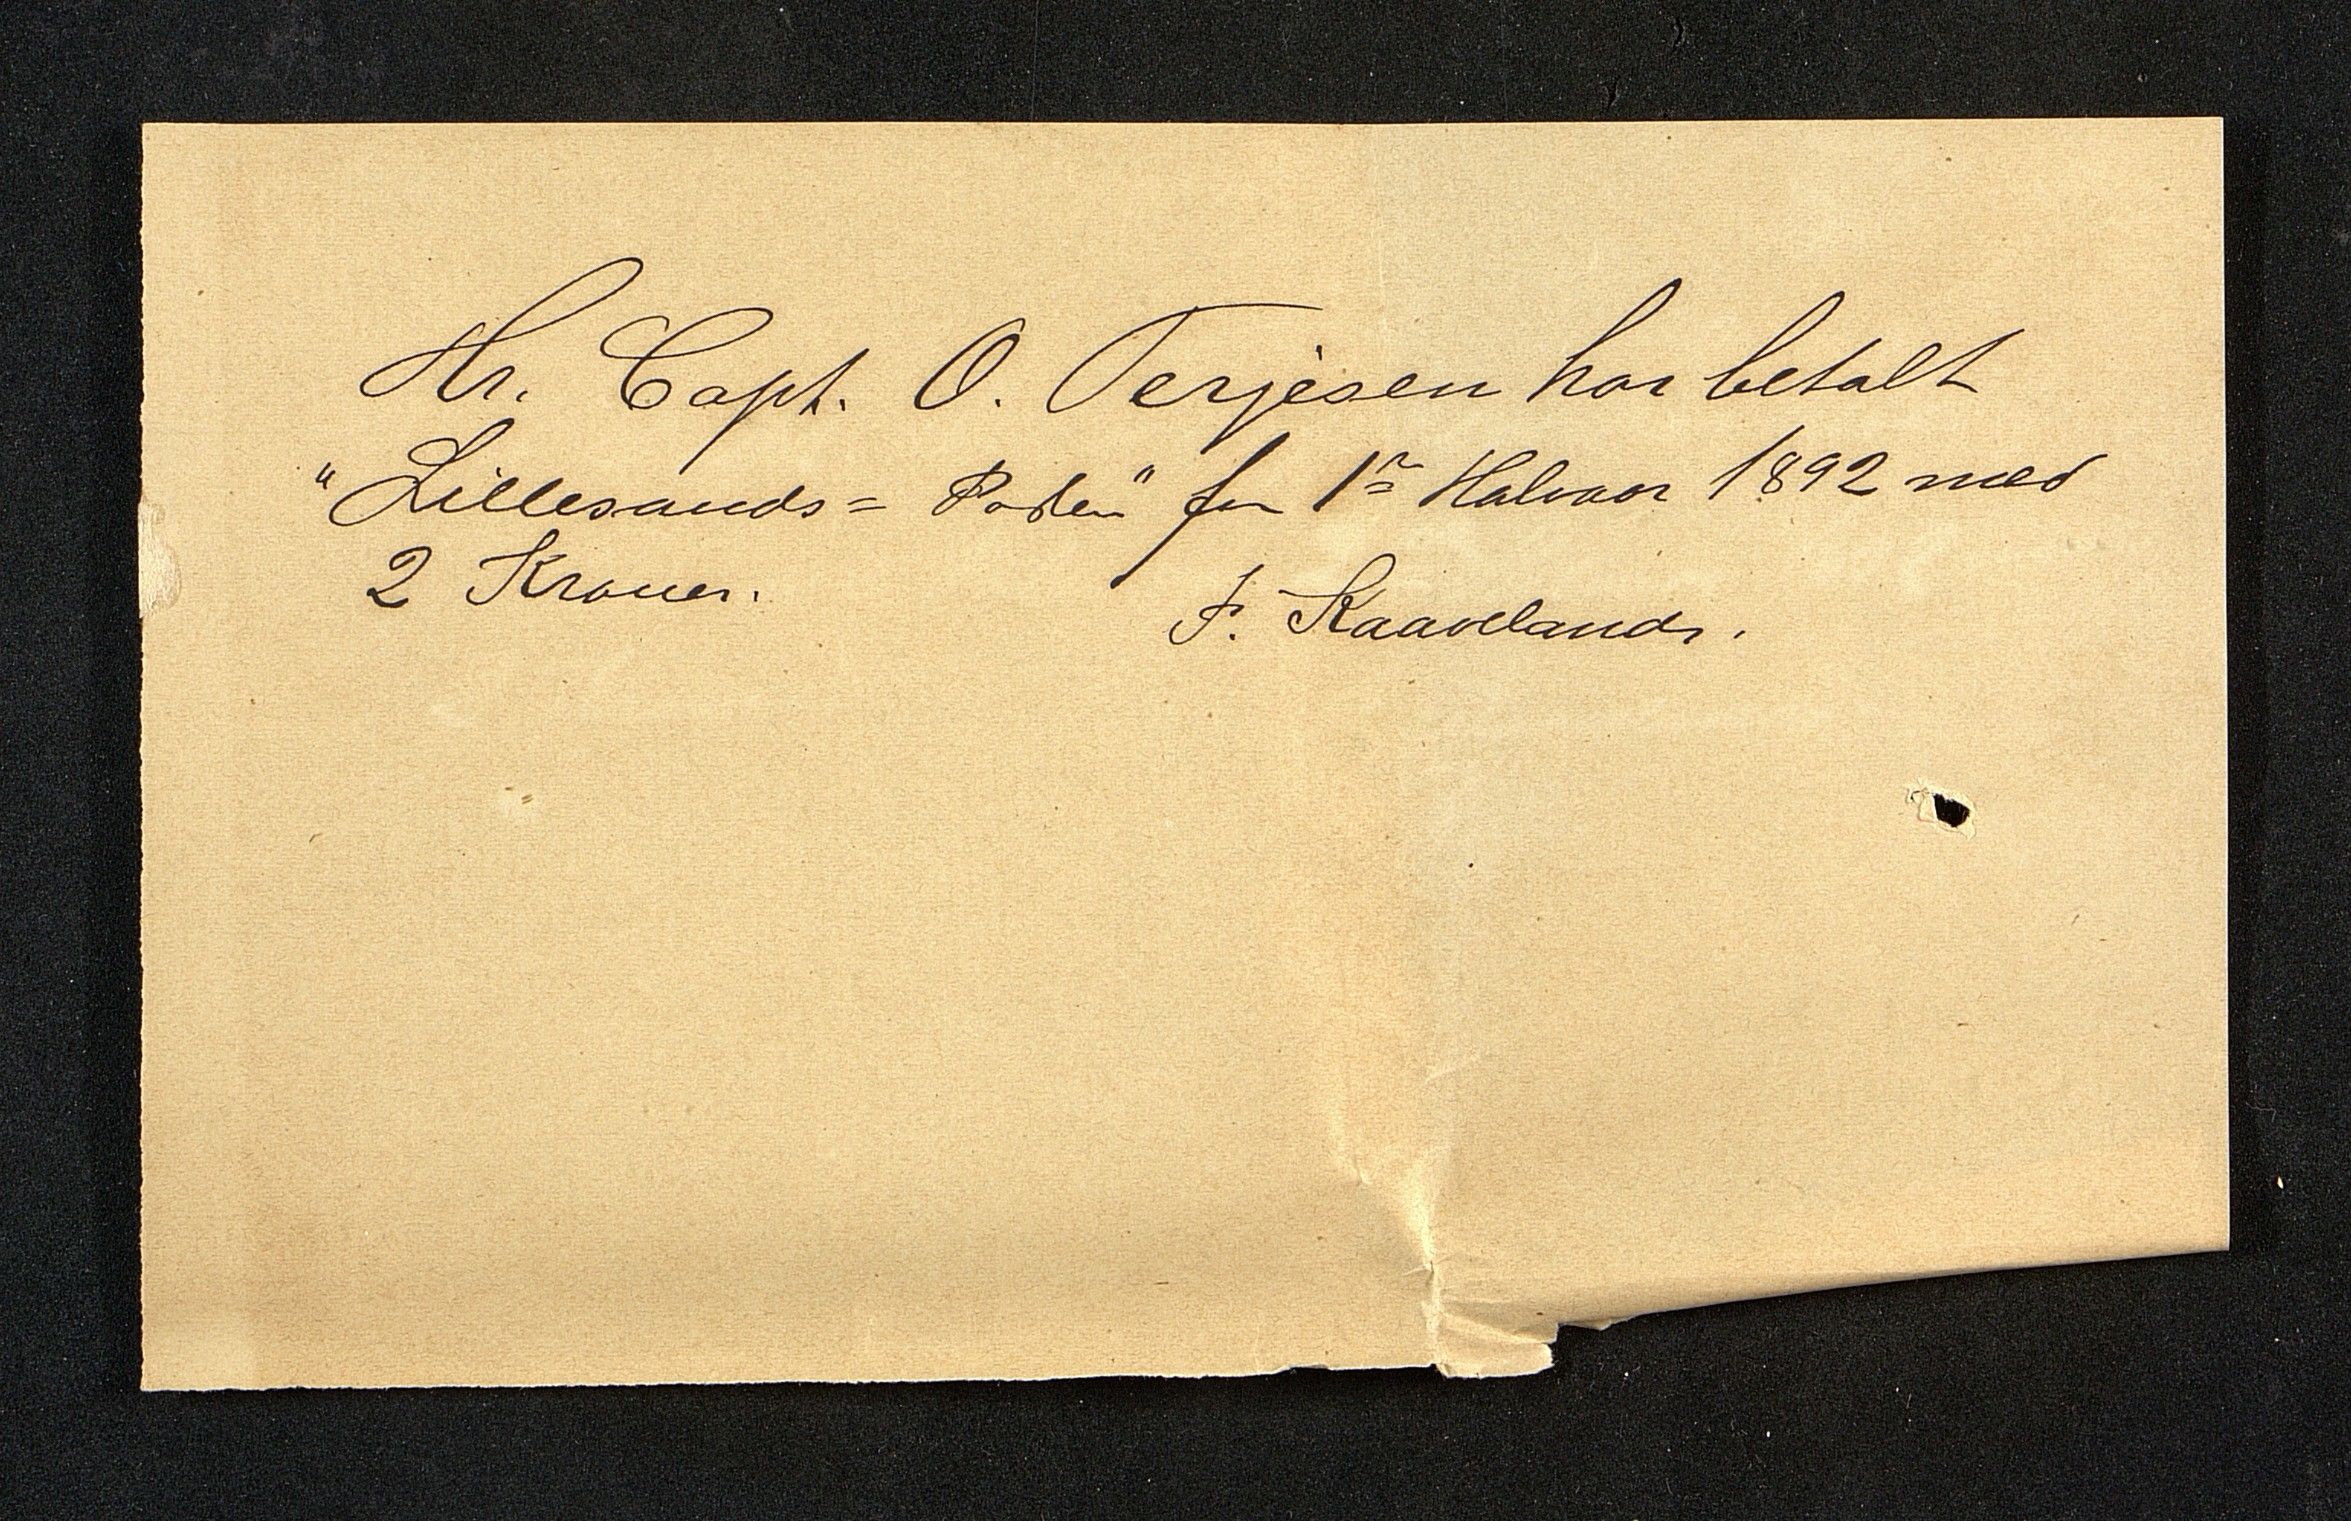 Hr. Capt. O. Terjesen har betalt
"Lillesands= Posten" for 1ste Halvaar 1892 med
2 Kroner.
F. Kaavelands.